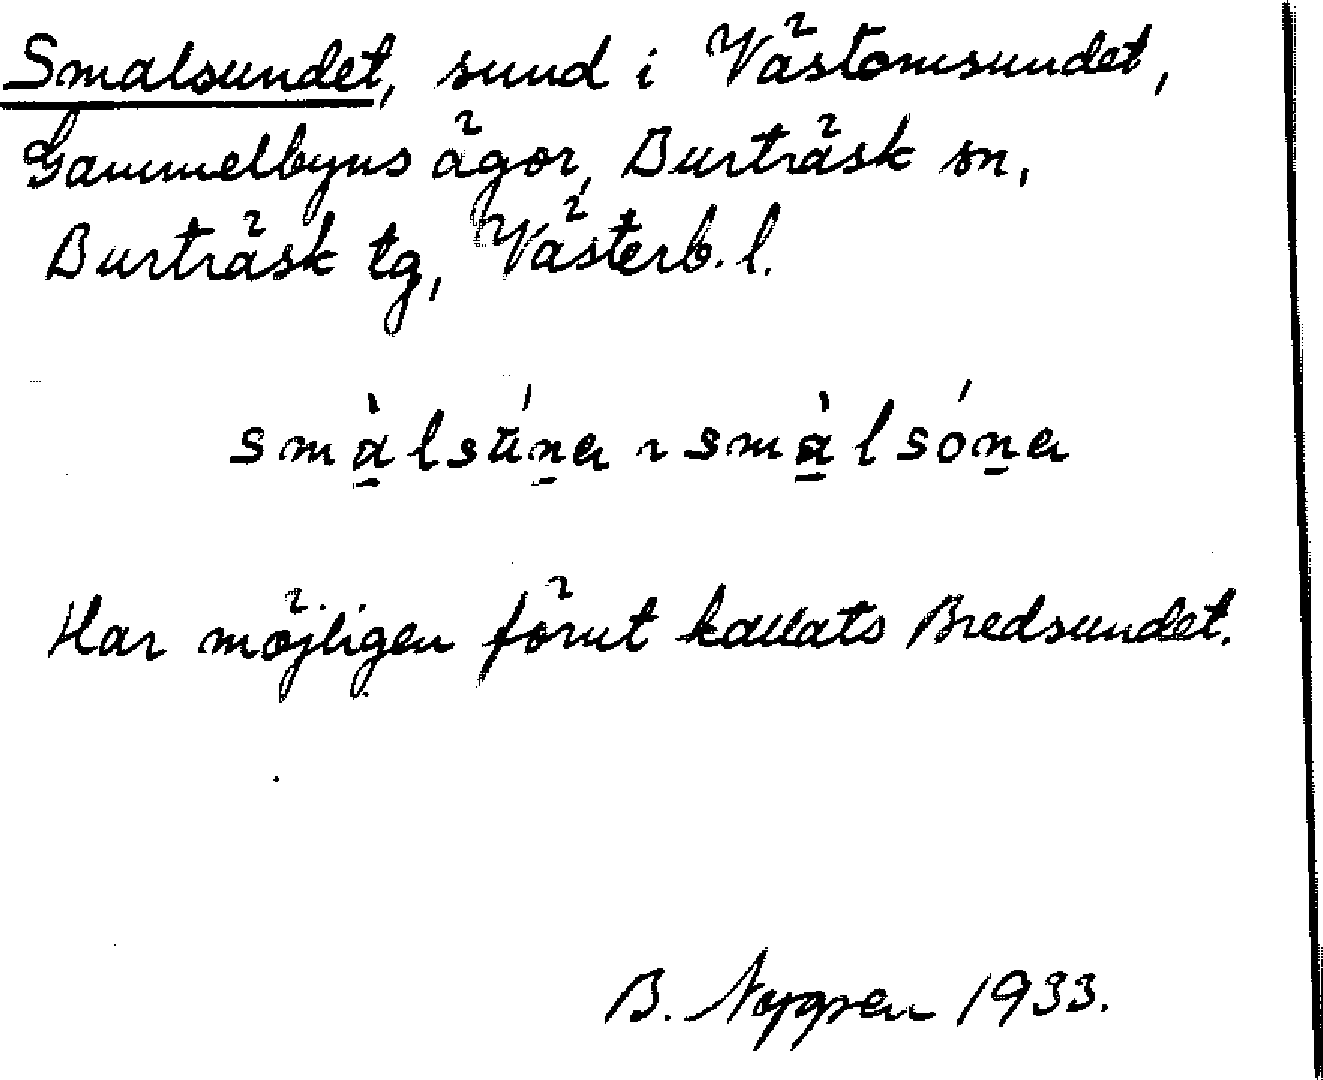 Smalsundet, sund i Västomsundet,
Gammelbyns ägor, Burträsk sn,
Burträsk tg, Västerb. l.
smàlsúna ~ smàlsóna
Har möjligen förut kallats Bredsundet.
B. Nygren 1933.